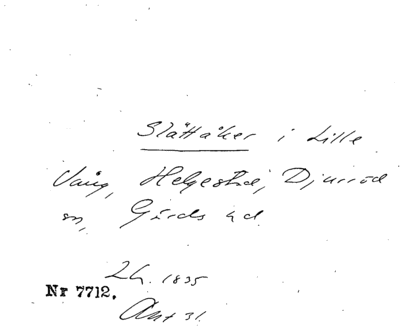 Slättåker i Lille
Vång, Helgestad, Djurröd
sn, Gärds hd.
LH. 1835
Nr 7712.
Akt 31.